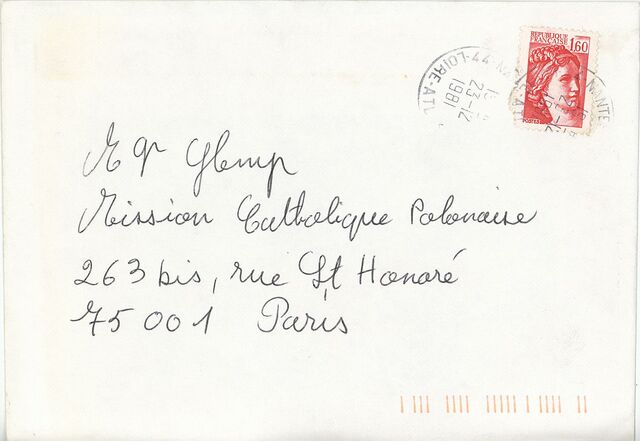 REPUBLIQUE
FRANÇAISE
1,60
POSTES
44-NA
LOIRE-ATL
23-12
1981
NANTE
Mgr Glemp
Mission Catholique Polonaise
263 bis, rue St Honoré
75001 Paris